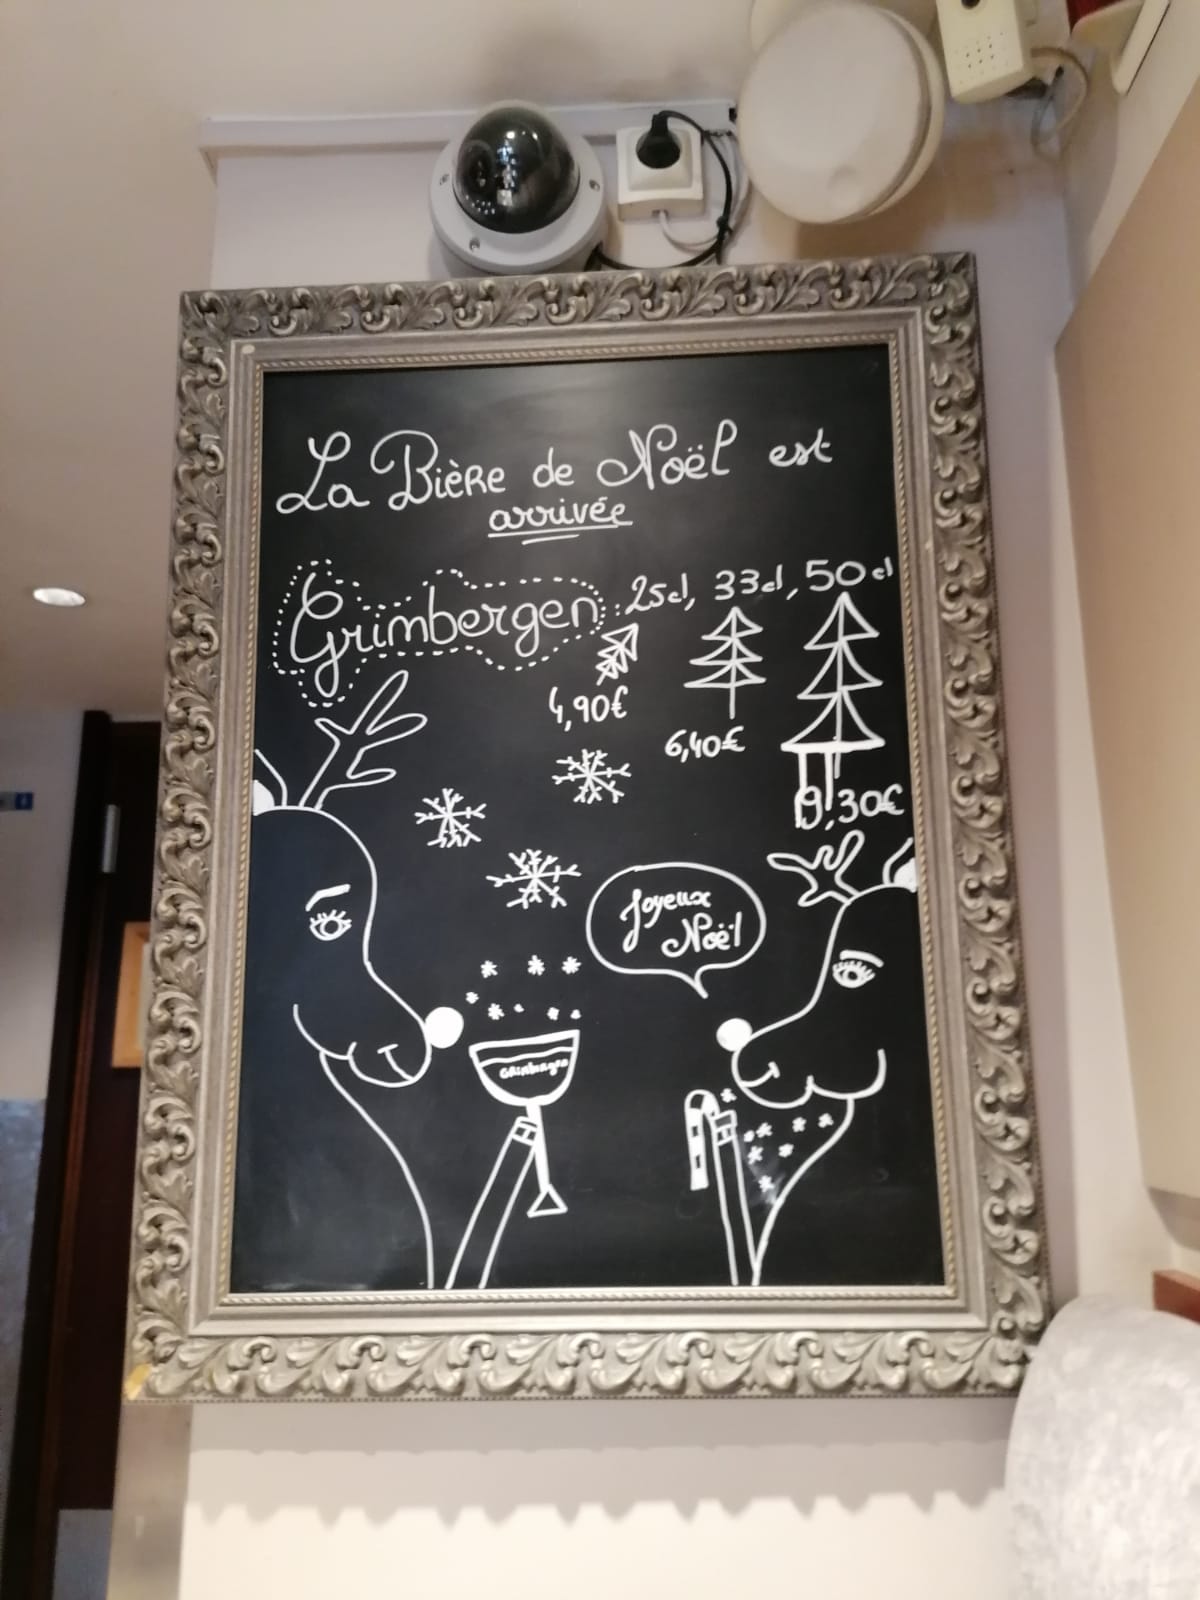 La Bière de Noël est
arrivée
Grimbergen : 25cl, 33cl, 50cl
4,90€
6,40€
9,30€
Joyeux
Noël
Grimbergen